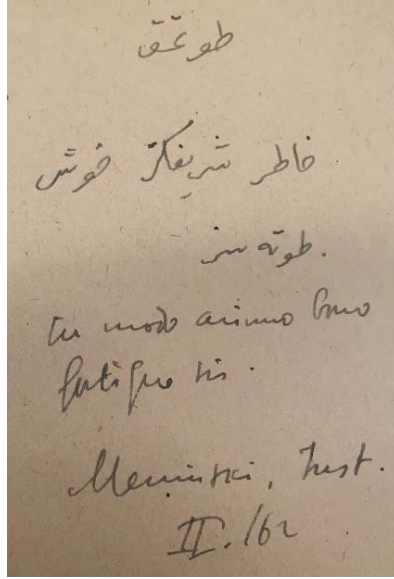 طوتمق
خاطر شريفكز خوش
طوته سز.
tu modo animo bono
fortique sis.
Meninski, Inst.
II. 162